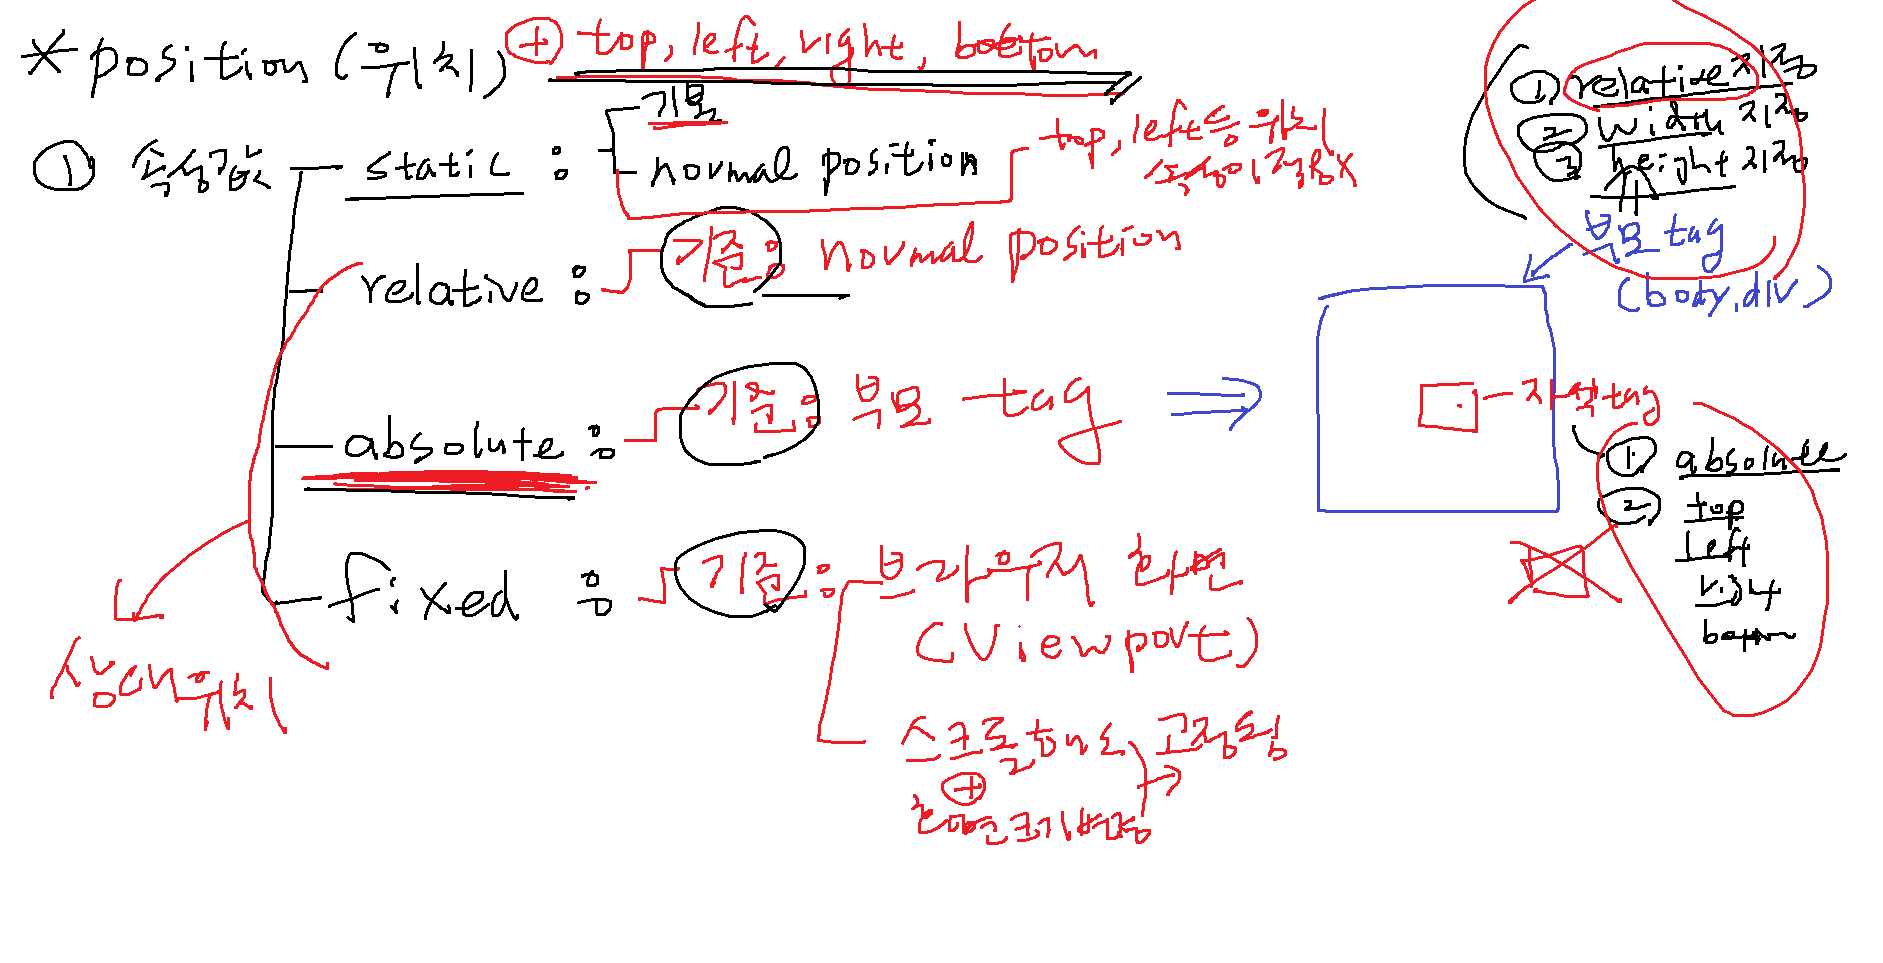 * position (위치) + top, left, right, bottom
① 속성값 static : 기본
normal position
top, left등 위치
속성이 적용X
relative : 기준 : normal position
absolute : 기준 : 부모 tag ⇒
fixed : 기준 : 브라우저 화면
(Viewport)
스크롤해도 고정됨
+
화면크기변경
상대위치
① relative 지정
② width 지정
③ height 지정
부모 tag
(body, div)
자식tag
① absolute
② top
left
right
bottom